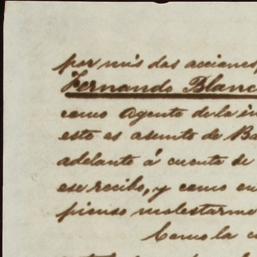 por mis das acciones,
Fernando Blanc
como Agente de la in
esto es asunto de Ba
adelanto á cuenta de
ese recibo, y como cu
pienso molestarme
Como la c